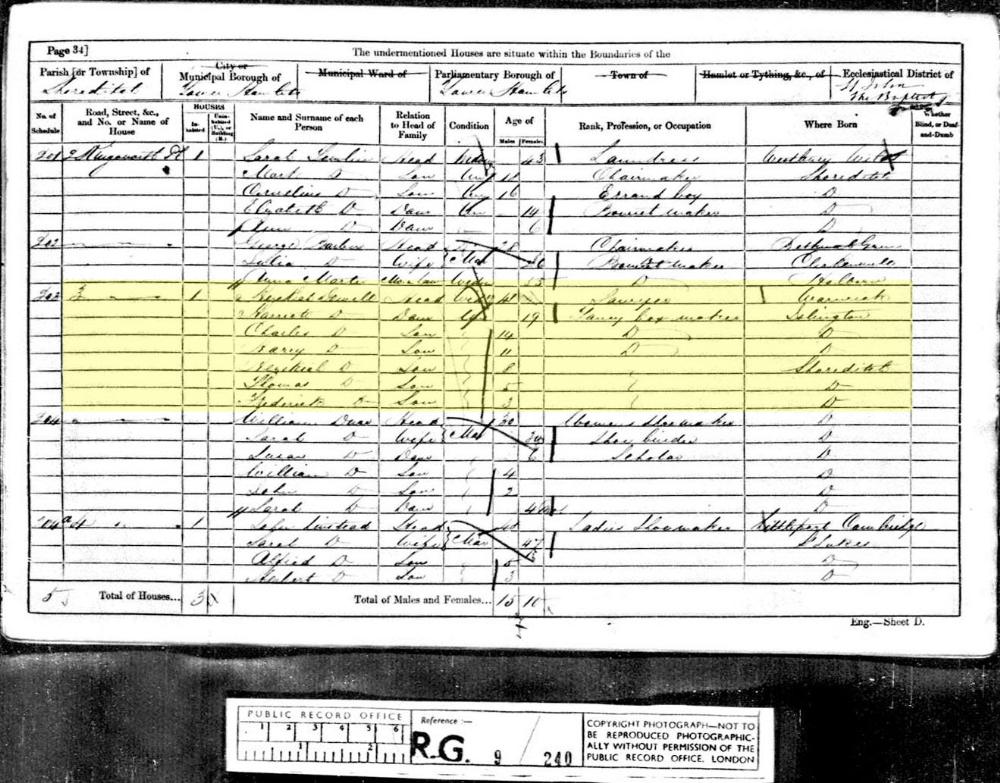 Page 34]
The undermentioned Houses are situate within the Boundaries of the
Parish [or Township] of
City or Municipal Borough of
Municipal Ward of
Parliamentary Borough of
Town of
Hamlet or Tything, &c., of
Ecclesiastical District of
Shoreditch
Tower Hamlets
Tower Hamlets
St John The Baptist
No. of Schedule
Road, Street, &c., and No. or Name of House
HOUSES
Inhabited
Uninhabited (U.), or Building (B.)
Name and Surname of each Person
Relation to Head of Family
Condition
Age of
Males
Females
Rank, Profession, or Occupation
Where Born
Whether Blind, or Deaf-and-Dumb
201 2 1 Sarah Head 43 Laundress
Mark D Son Chairmaker Shoreditch
Cornelius D Son Un 16 Errand boy D
Elizabeth D Daur Un 14 Bonnet maker D
D Daur 6 D
202 George Head 28 Chairmaker Bethnal Green
Julia D Wife Mar 26 Bonnet maker Clerkenwell
Holborn
203 3 1 Ezekiel Head 41 Sawyer Warwick
Harriett D Daur 19 Fancy box maker Islington
Charles D Son 14 D D
Harry D Son 11 D D
Ezekiel D Son 8 Shoreditch
Thomas D Son 5 D
Frederick D Son 3 D
204 William Head 30 Womens Shoe maker D
Sarah D Wife Mar Shoe binder D
Susan D Daur 6 Scholar D
William D Son 4 D
John D Son 2 D
Sarah D Daur D
204a 4 1 John Linstead Head Ladies Shoemaker Littleport Cambridge
Sarah D Wife Mar 47 St Lukes
Alfred D Son 5 D
Albert D Son 3 D
5 Total of Houses... 3 Total of Males and Females... 15 10
Eng.—Sheet D.
PUBLIC RECORD OFFICE
1 2 3 4 5 6
1 2
Reference :—
R.G. 9 / 240
COPYRIGHT PHOTOGRAPH—NOT TO
BE REPRODUCED PHOTOGRAPHIC-
ALLY WITHOUT PERMISSION OF THE
PUBLIC RECORD OFFICE, LONDON